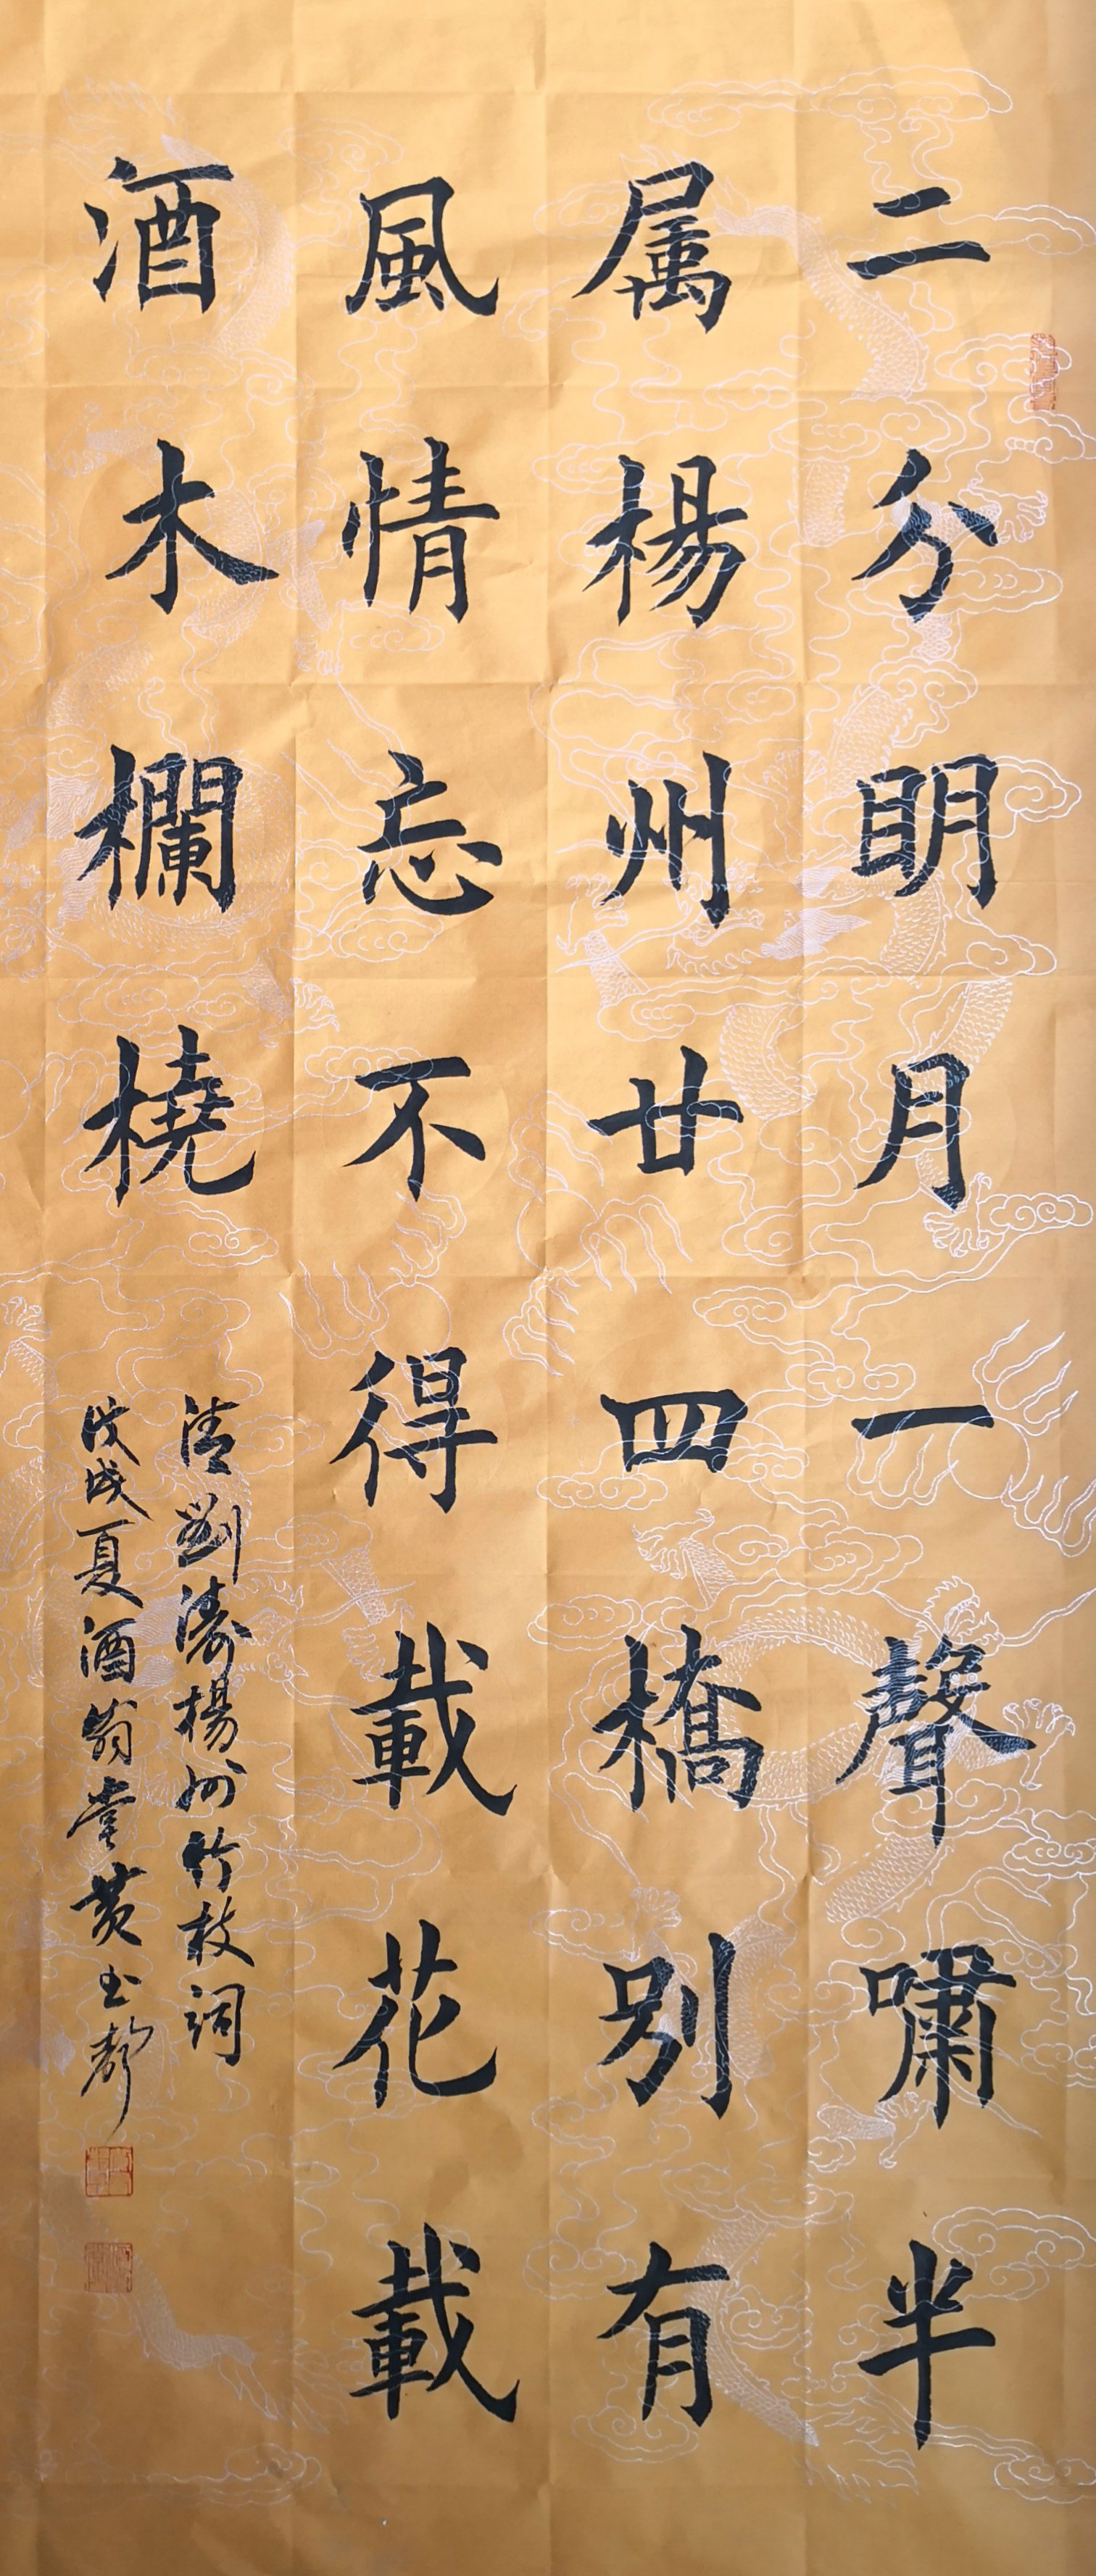 二分明月一聲嘯半
属楊州廿四橋別有
風情忘不得載花載
酒木欄橈
清劉濤楊州竹枝詞
戊戌夏酒翁堂黄玉静